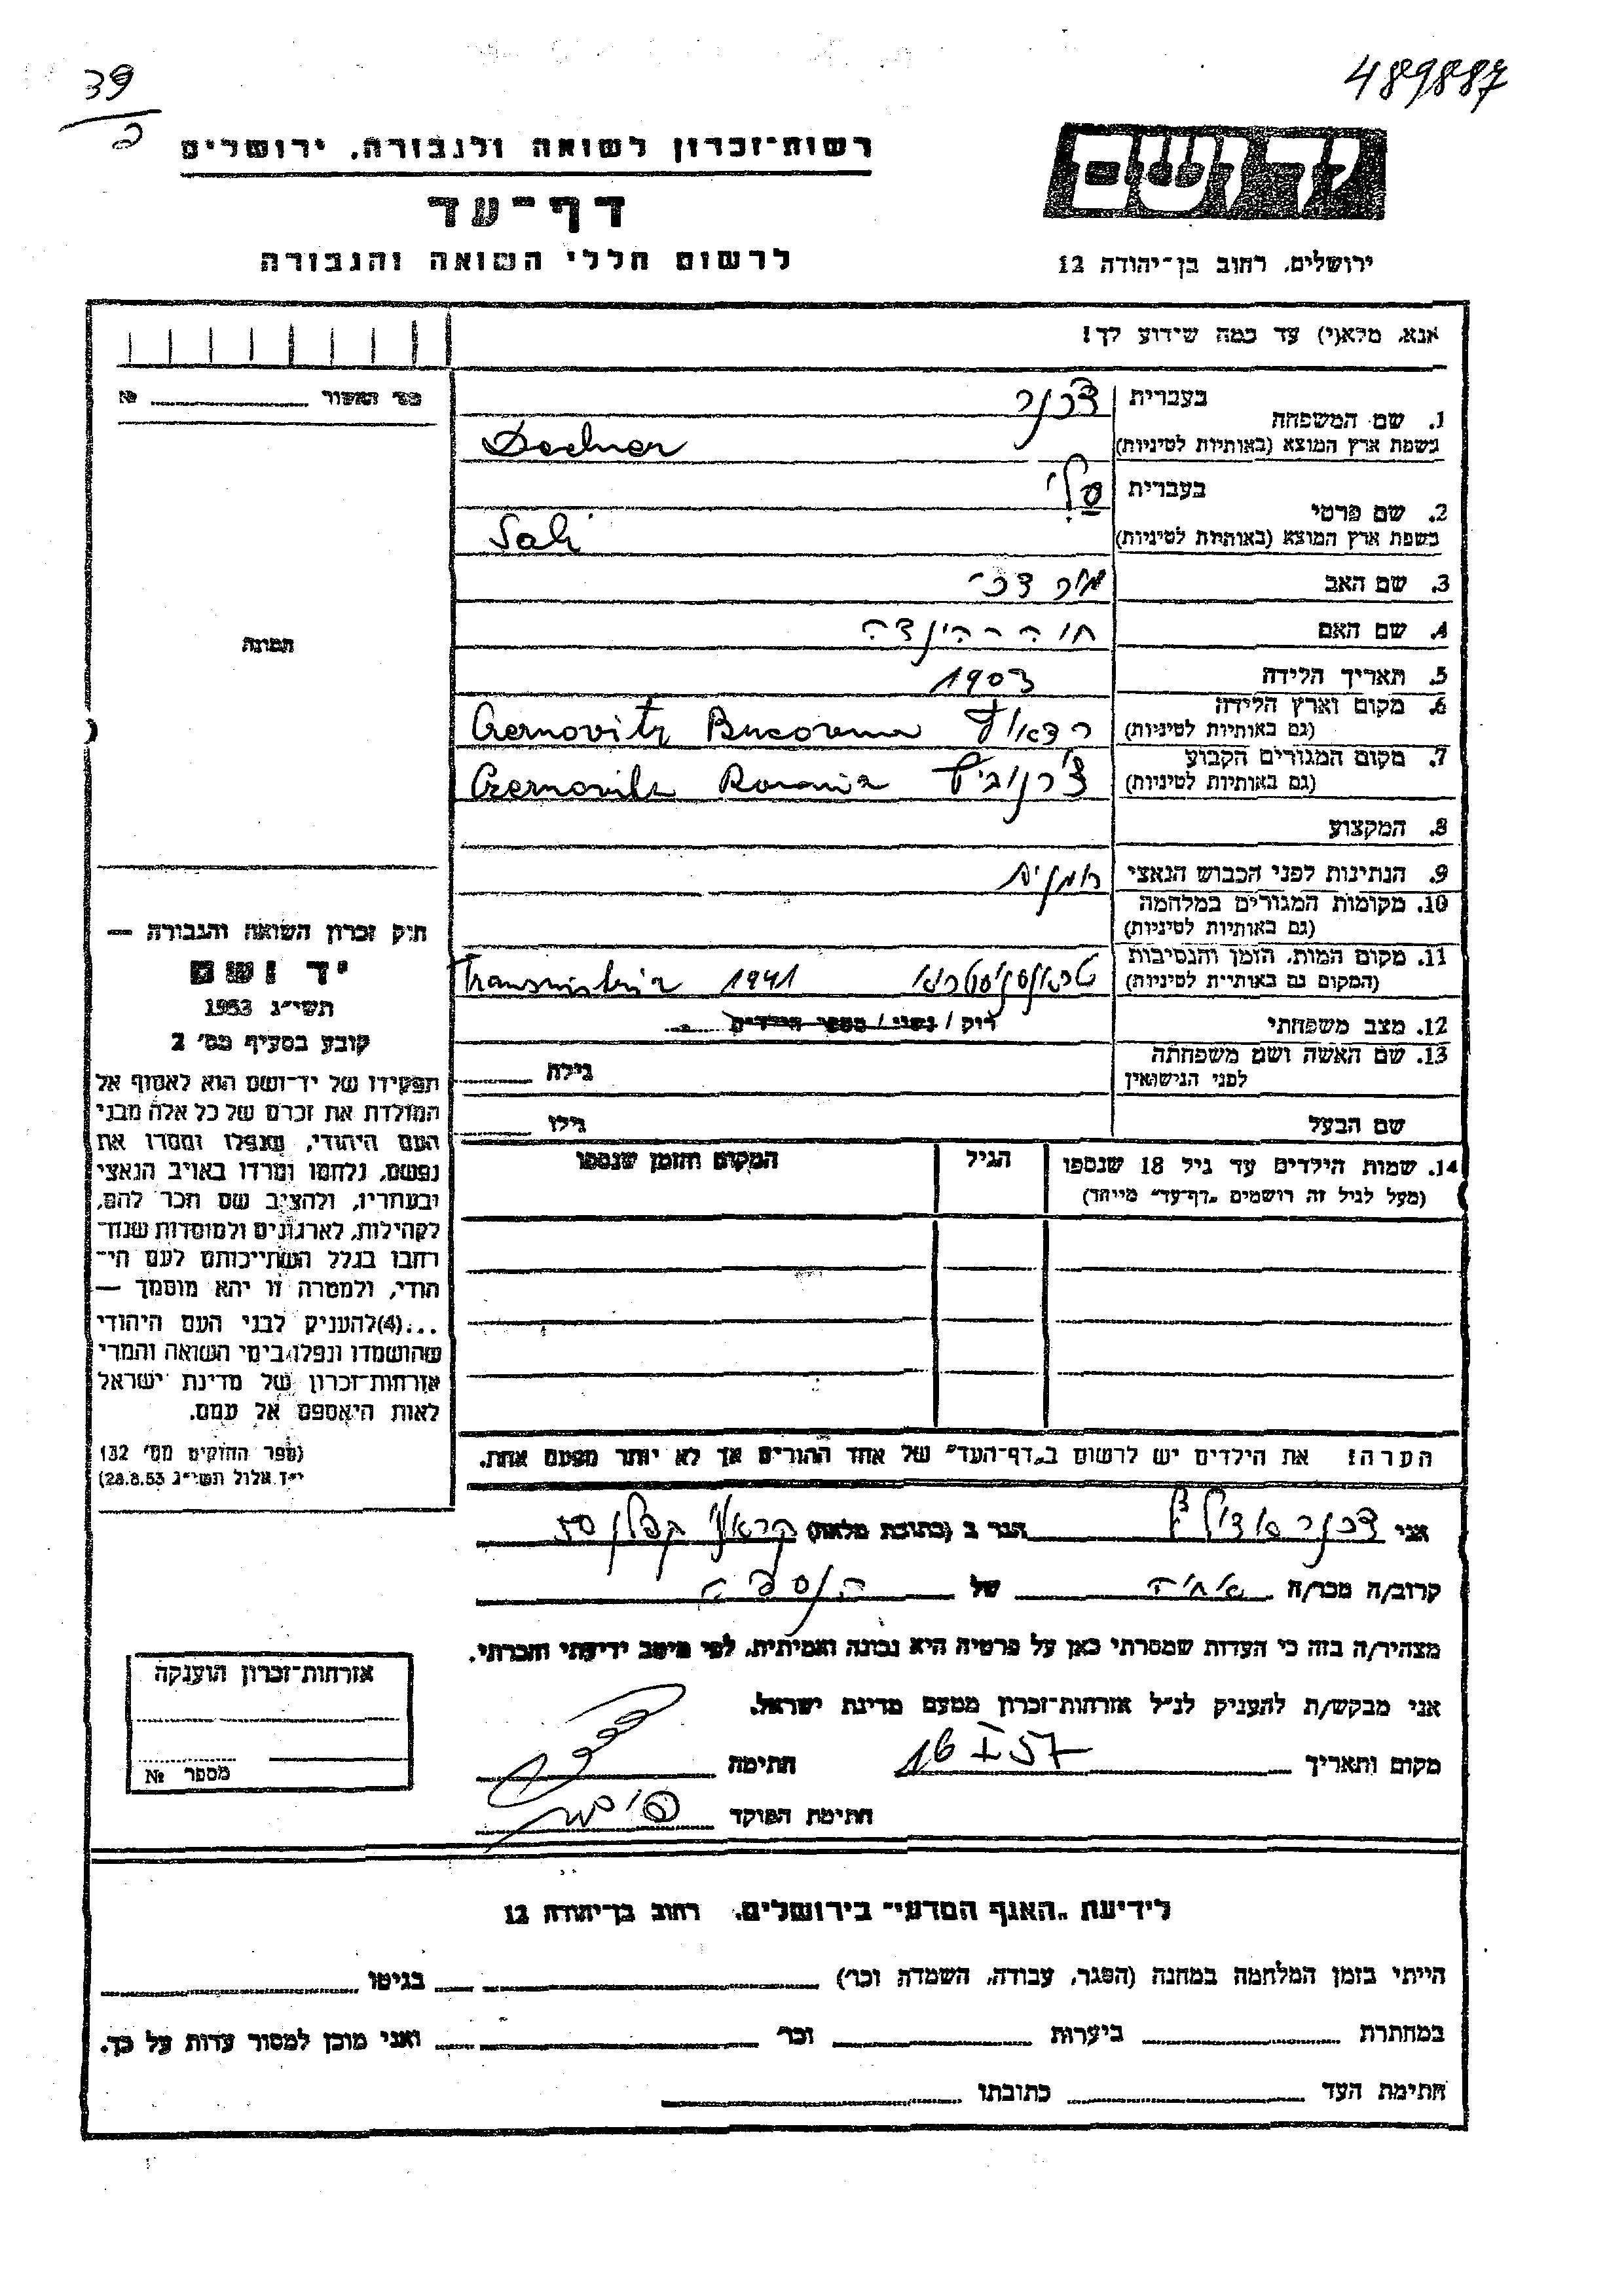 489887
39
רשות־זכרון לשואה ולגבורה, ירושלים
דף־עד
לרשום חללי השואה והגבורה
יד ושם
ירושלים, רחוב בן־יהודה 12
אנא, מלא(י) עד כמה שידוע לך!
מס׳ האשור № 
1. שם המשפחה בעברית דכנר
בשפת ארץ המוצא (באותיות לטיניות) Dechner
2. שם פרטי בעברית סלי
בשפת ארץ המוצא (באותיות לטיניות) Sali
3. שם האב
4. שם האם חוה הינדה
5. תאריך הלידה 1903
6. מקום וארץ הלידה
(גם באותיות לטיניות) Czernovitz Bucovina
7. מקום המגורים הקבוע
(גם באותיות לטיניות) צ׳רנוביץ Czernovitz Romania
8. המקצוע
9. הנתינות לפני הכבוש הנאצי רומנית
10. מקומות המגורים במלחמה
(גם באותיות לטיניות)
11. מקום המות, הזמן והנסיבות
(המקום גם באותיות לטיניות) טראנסניסטריא 1941 Transnistria
12. מצב משפחתי רוק / נשוי / מספר הילדים
13. שם האשה ושם משפחתה
לפני הנישואין גילה
שם הבעל גילו
14. שמות הילדים עד גיל 18 שנספו
(מעל לגיל זה רושמים „דף־עד״ מיוחד)
הגיל
המקום והזמן שנספו
תמונה
חוק זכרון השואה והגבורה —
יד ושם
תשי״ג 1953
קובע בסעיף מס׳ 2
תפקידו של יד־ושם הוא לאסוף אל
המולדת את זכרם של כל אלה מבני
העם היהודי, שנפלו ומסרו את
נפשם, נלחמו ומרדו באויב הנאצי
ובעוזריו, ולהציב שם וזכר להם,
לקהילות, לארגונים ולמוסדות שנח־
רבו בגלל השתייכותם לעם הי־
הודי, ולמטרה זו יהא מוסמך —
...(4)להעניק לבני העם היהודי
שהושמדו ונפלו בימי השואה והמרי
אזרחות־זכרון של מדינת ישראל
לאות היאספם אל עמם.
(ספר החוקים מס׳ 132
י״ז אלול תשי״ג 28.8.53)
הערה: את הילדים יש לרשום ב„דף־העד״ של אחד ההורים אך לא יותר מפעם אחת.
אני דכנר הגר ב (כתובת מלאה)
קרוב/ה מכר/ה של
מצהיר/ה בזה כי העדות שמסרתי כאן על פרטיה היא נכונה ואמיתית, לפי מיטב ידיעתי והכרתי.
אני מבקש/ת להעניק לנ״ל אזרחות־זכרון מטעם מדינת ישראל.
מקום ותאריך 16 I 57 חתימה
חתימת הפוקד
אזרחות־זכרון הוענקה
מספר №
לידיעת „האגף המדעי״ בירושלים, רחוב בן־יהודה 12
הייתי בזמן המלחמה במחנה (הסגר, עבודה, השמדה וכו׳) בגיטו
במחתרת ביערות וכו׳ ואני מוכן למסור עדות על כך.
חתימת העד כתובתו